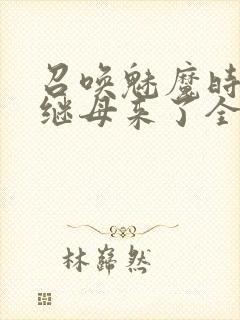 召唤魅魔时
继母来了全
林巋然